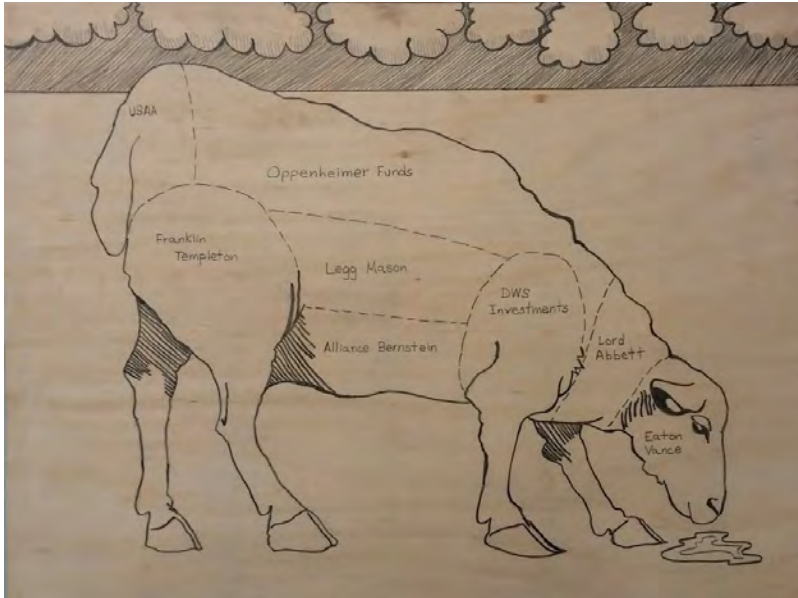 USAA
Oppenheimer Funds
Franklin
Templeton
Legg Mason
DWS
Investments
Alliance Bernstein
Lord
Abbett
Eaton
Vance